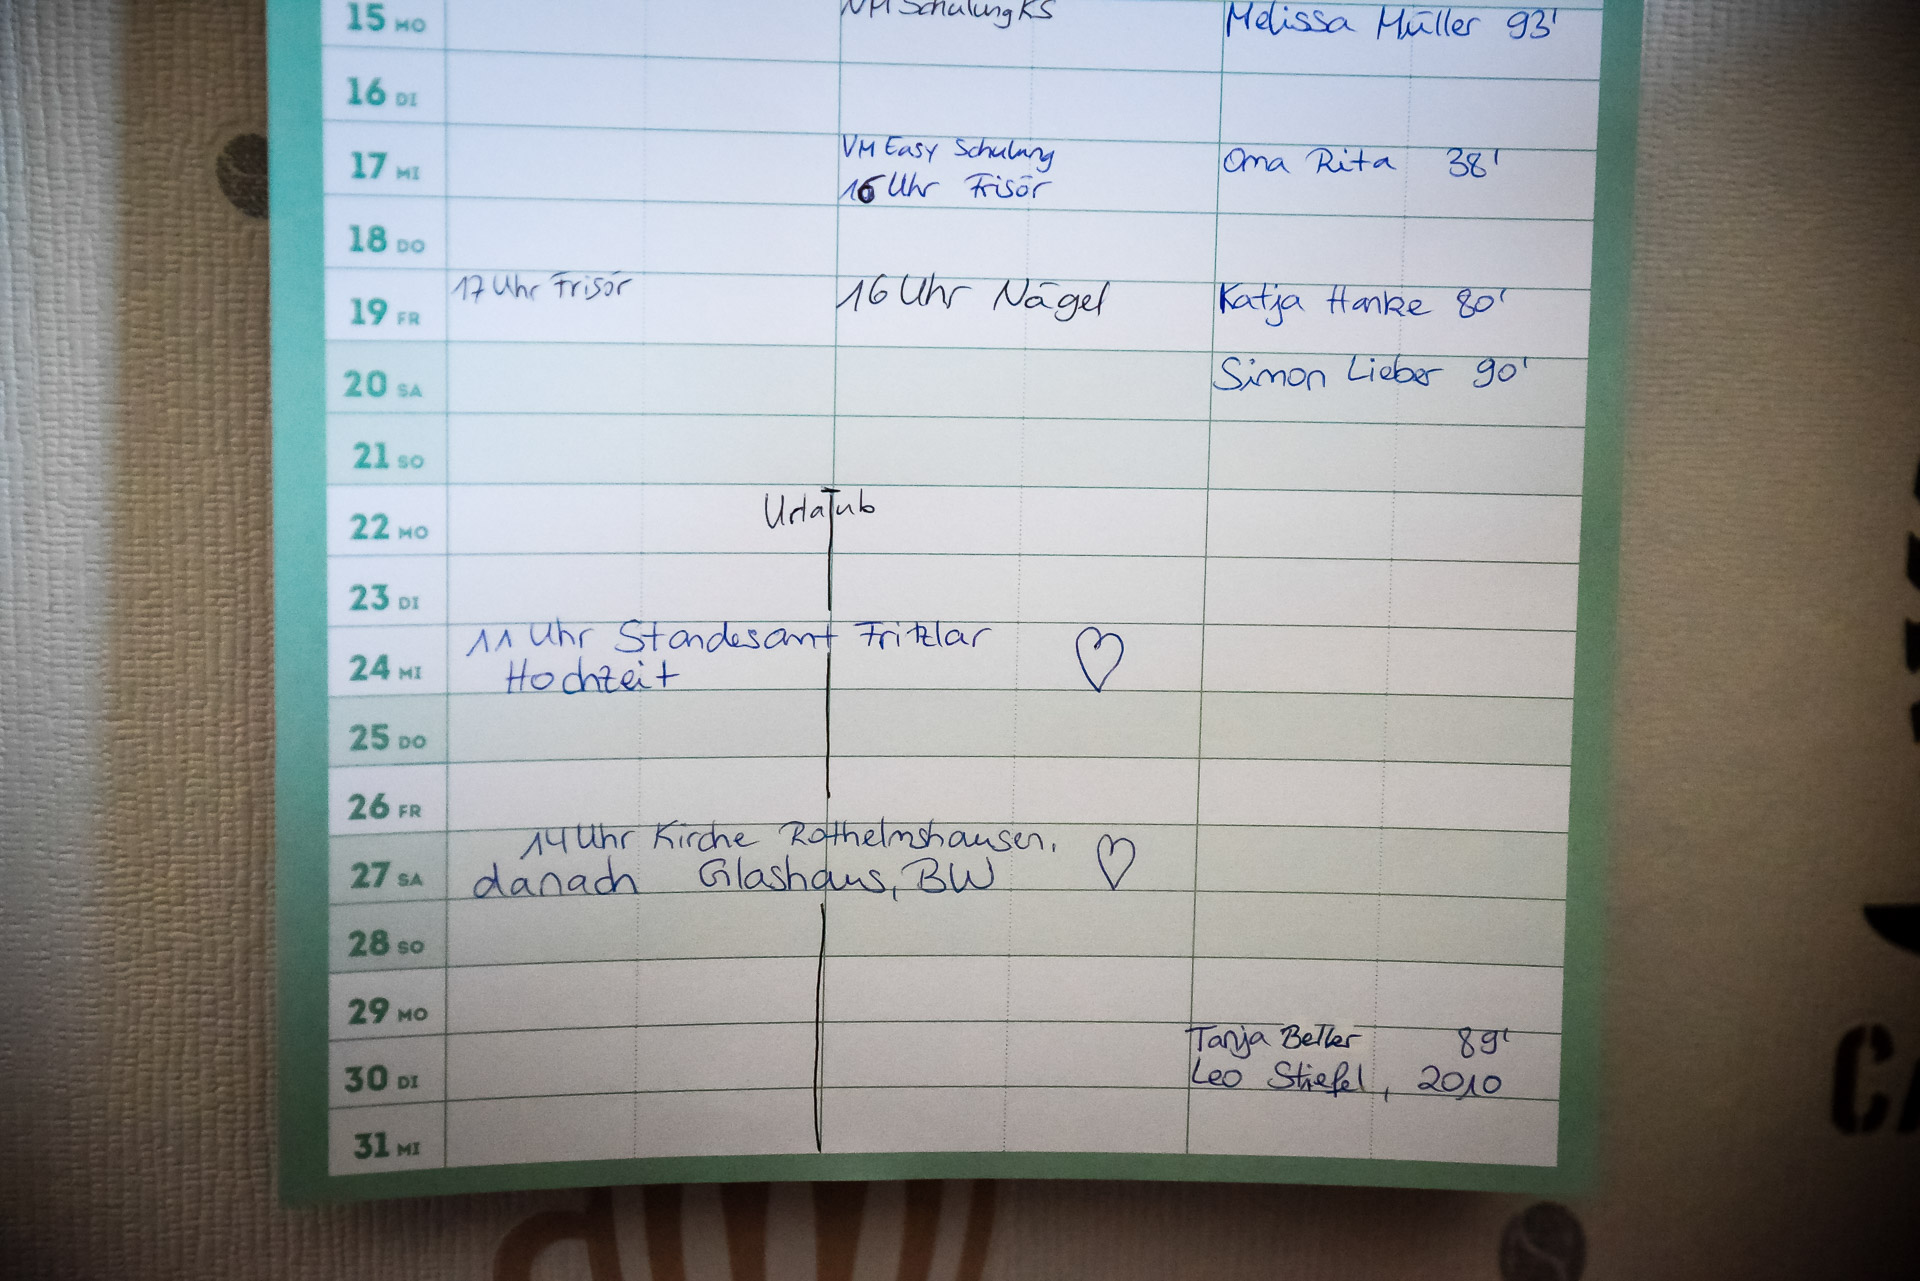 15 MO VM Schulung KS Melissa Müller 93'
16 DI
17 MI VM Easy Schulung Oma Rita 38'
16 Uhr Frisör
18 DO
19 FR 17 Uhr Frisör 16 Uhr Nägel Katja Hanke 80'
20 SA Simon Lieber 90'
21 SO
22 MO Urlaub
23 DI
24 MI 11 Uhr Standesamt Fritzlar
Hochzeit
25 DO
26 FR
27 SA 14 Uhr Kirche Rothelmshausen,
danach Glashaus, BW
28 SO
29 MO
30 DI Tanja 89'
Leo Stiefel, 2010
31 MI